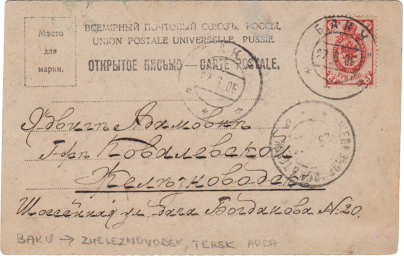 Мѣсто
для
марки.
ВСЕМІРНЫЙ ПОЧТОВЫЙ СОЮЗЪ. РОССІЯ.
UNION POSTALE UNIVERSELLE. RUSSIE.
ОТКРЫТОЕ ПИСЬМО — CARTE POSTALE.
БАКУ
Ядвигѣ Адамовнѣ
Ковалевской
Желѣзноводскъ
Шоссейная ул. дача Богданова N. 20.
BAKU → ZHELEZNOVODSK, TERSK AREA